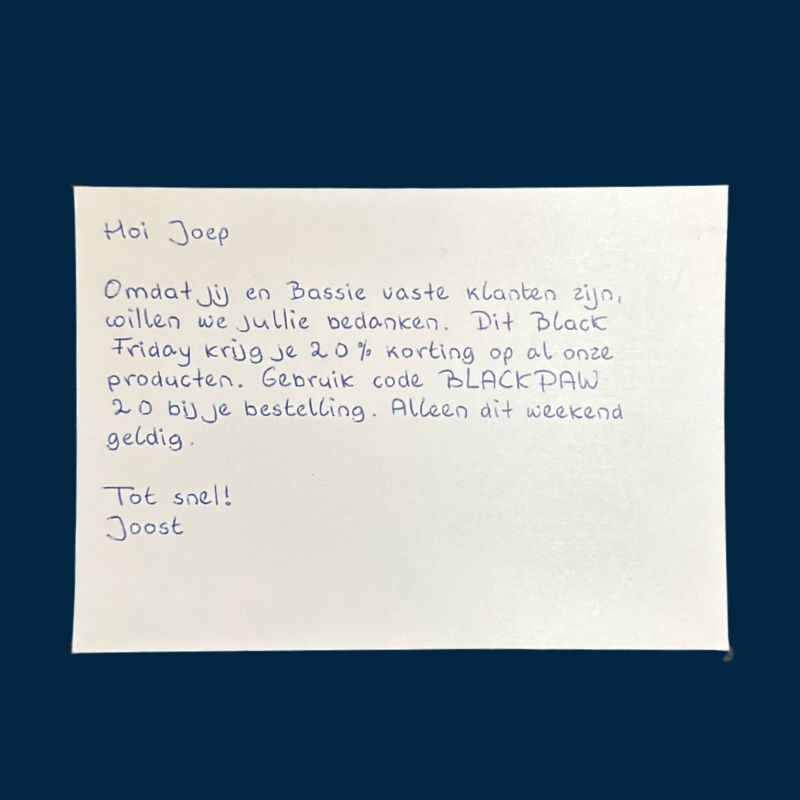 Hoi Joep
Omdat jij en Bassie vaste klanten zijn,
willen we jullie bedanken. Dit Black
Friday krijg je 20% korting op al onze
producten. Gebruik code BLACKPAW
20 bij je bestelling. Alleen dit weekend
geldig.
Tot snel!
Joost